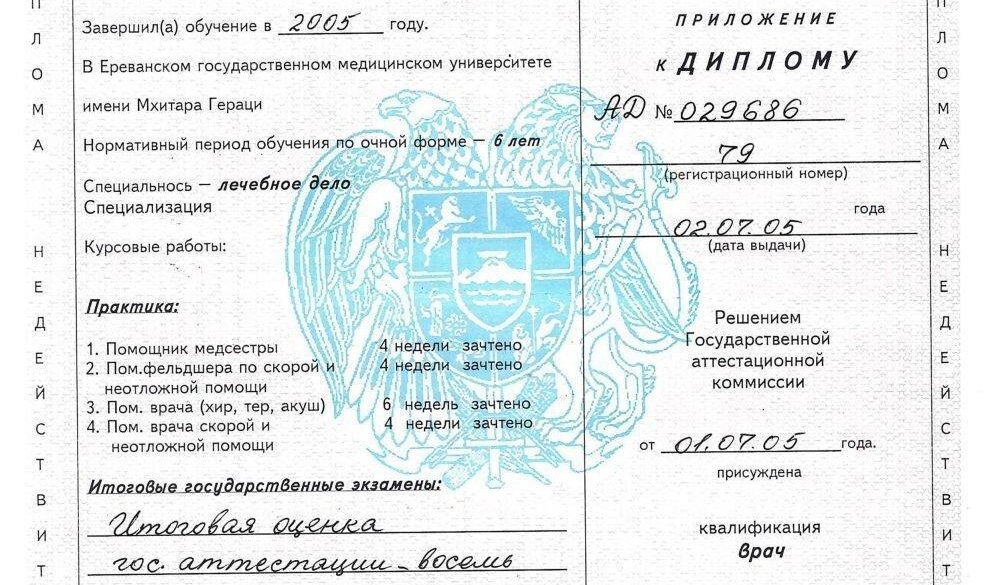 Завершил(а) обучение в 2005 году.
В Ереванском государственном медицинском университете
имени Мхитара Гераци
Нормативный период обучения по очной форме – 6 лет
Специальнось – лечебное дело
Специализация
Курсовые работы:
Практика:
1. Помощник медсестры 4 недели зачтено
2. Пом.фельдшера по скорой и 4 недели зачтено
неотложной помощи
3. Пом. врача (хир, тер, акуш) 6 недель зачтено
4. Пом. врача скорой и 4 недели зачтено
неотложной помощи
Итоговые государственные экзамены:
Итоговая оценка
гос. аттестации – восемь
ПРИЛОЖЕНИЕ
к ДИПЛОМУ
АД № 029686
79
(регистрационный номер)
02.07.05 года
(дата выдачи)
Решением
Государственной
аттестационной
комиссии
от 01.07.05 года.
присуждена
квалификация
Врач
П Л О М А Н Е Д Е Й С Т В И Т
П Л О М А Н Е Д Е Й С Т В И Т